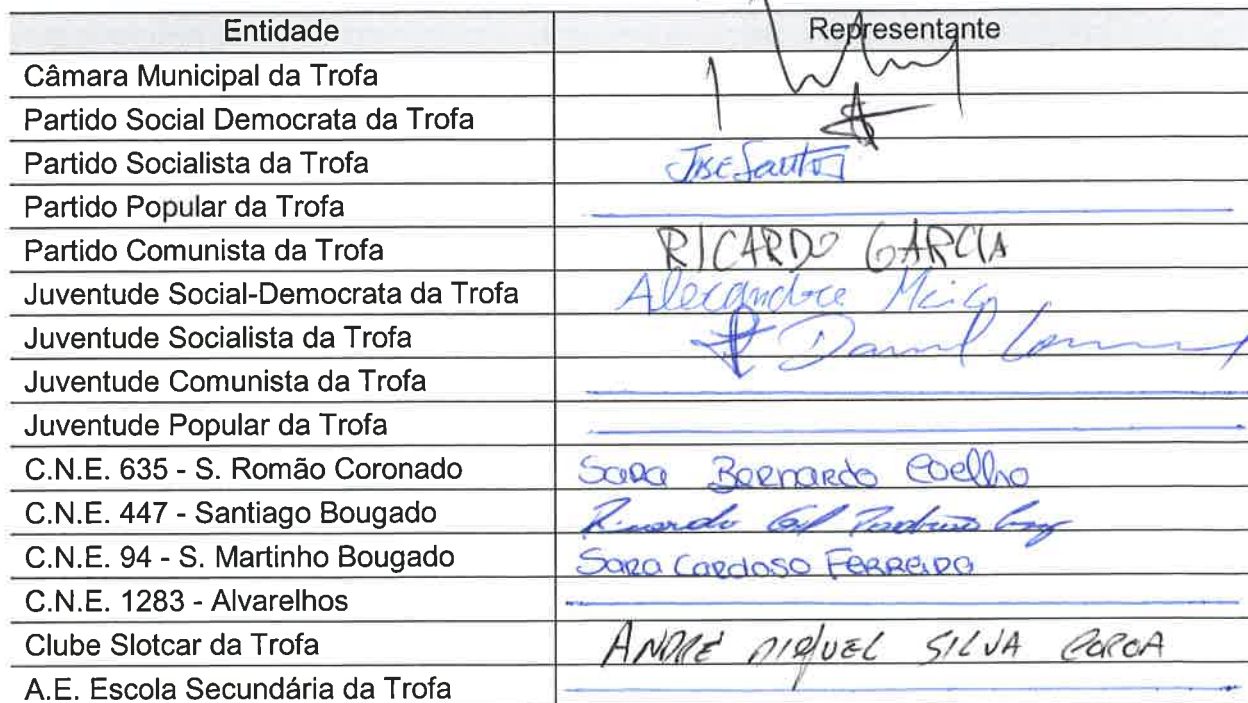 Entidade Representante
Câmara Municipal da Trofa
Partido Social Democrata da Trofa
Partido Socialista da Trofa José Santos
Partido Popular da Trofa
Partido Comunista da Trofa RICARDO GARCIA
Juventude Social-Democrata da Trofa Alexandre
Juventude Socialista da Trofa Daniel
Juventude Comunista da Trofa
Juventude Popular da Trofa
C.N.E. 635 - S. Romão Coronado Sara Bernardo Coelho
C.N.E. 447 - Santiago Bougado Ricardo
C.N.E. 94 - S. Martinho Bougado Sara Cardoso Ferreira
C.N.E. 1283 - Alvarelhos
Clube Slotcar da Trofa ANDRÉ MIGUEL SILVA
A.E. Escola Secundária da Trofa